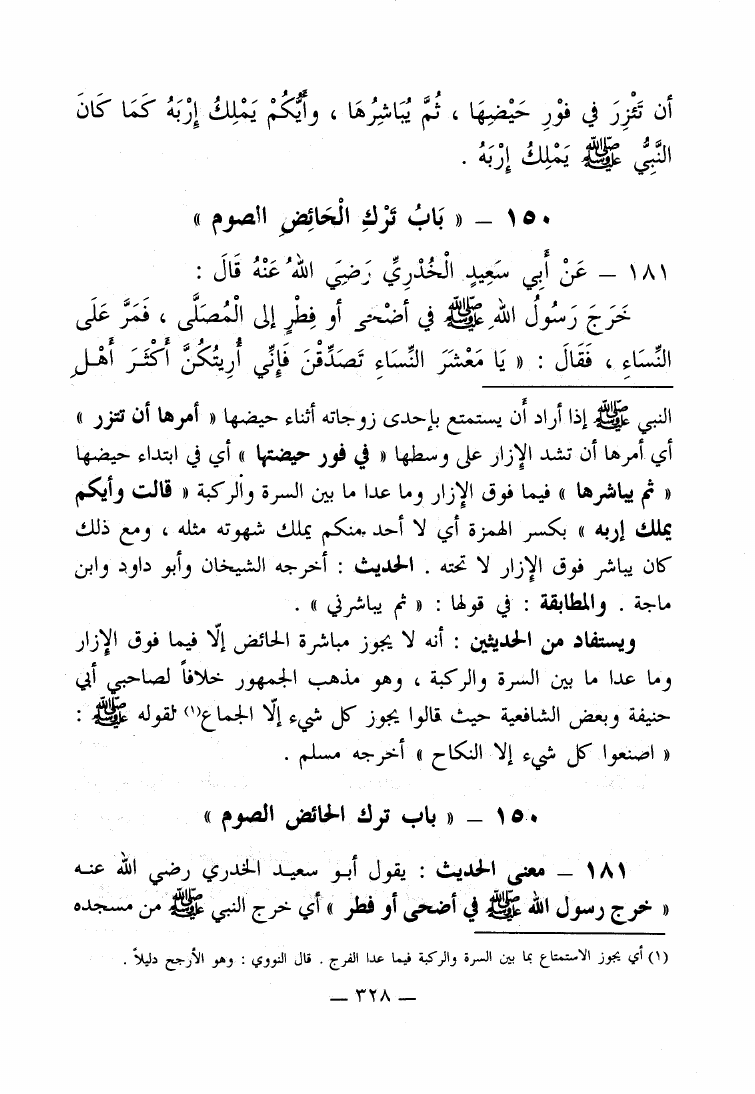 أن تَتَّزِرَ في فَوْرِ حَيْضِهَا ، ثُمَّ يُبَاشِرُهَا ، وأَيُّكُمْ يَمْلِكُ إِرْبَهُ كَمَا كَانَ
النَّبِيُّ ﷺ يَمْلِكُ إِرْبَهُ .
١٥٠ – « بَابُ تَرْكِ الْحَائِضِ الصوم »
١٨١ – عَنْ أَبِي سَعِيدٍ الْخُدْرِيِّ رَضِيَ اللهُ عَنْهُ قَالَ :
خَرَجَ رَسُولُ اللهِ ﷺ في أَضْحَى أو فِطْرٍ إلى الْمُصَلَّى ، فَمَرَّ عَلَى
النِّسَاءِ ، فَقَالَ : « يَا مَعْشَرَ النِّسَاءِ تَصَدَّقْنَ فَإِنِّي أُرِيتُكُنَّ أَكْثَرَ أَهْلِ
النبي ﷺ إذا أراد أن يستمتع بإحدى زوجاته أثناء حيضها « أمرها أن تتزر »
أي أمرها أن تشد الإزار على وسطها « في فور حيضتها » أي في ابتداء حيضها
« ثم يباشرها » فيما فوق الإزار وما عدا ما بين السرة والركبة « قالت وأيكم
يملك إربه » بكسر الهمزة أي لا أحد منكم يملك شهوته مثله ، ومع ذلك
كان يباشر فوق الإزار لا تحته . الحديث : أخرجه الشيخان وأبو داود وابن
ماجة . والمطابقة : في قولها : « ثم يباشرني » .
ويستفاد من الحديثين : أنه لا يجوز مباشرة الحائض إلّا فيما فوق الإزار
وما عدا ما بين السرة والركبة ، وهو مذهب الجمهور خلافاً لصاحبي أبي
حنيفة وبعض الشافعية حيث قالوا يجوز كل شيء إلّا الجماع(١) لقوله ﷺ :
« اصنعوا كل شيء إلا النكاح » أخرجه مسلم .
١٥٠ – « باب ترك الحائض الصوم »
١٨١ – معنى الحديث : يقول أبو سعيد الخدري رضي الله عنه
« خرج رسول الله ﷺ في أضحى أو فطر » أي خرج النبي ﷺ من مسجده
(١) أي يجوز الاستمتاع بما بين السرة والركبة فيما عدا الفرج . قال النووي : وهو الأرجح دليلاً .
– ٣٢٨ –